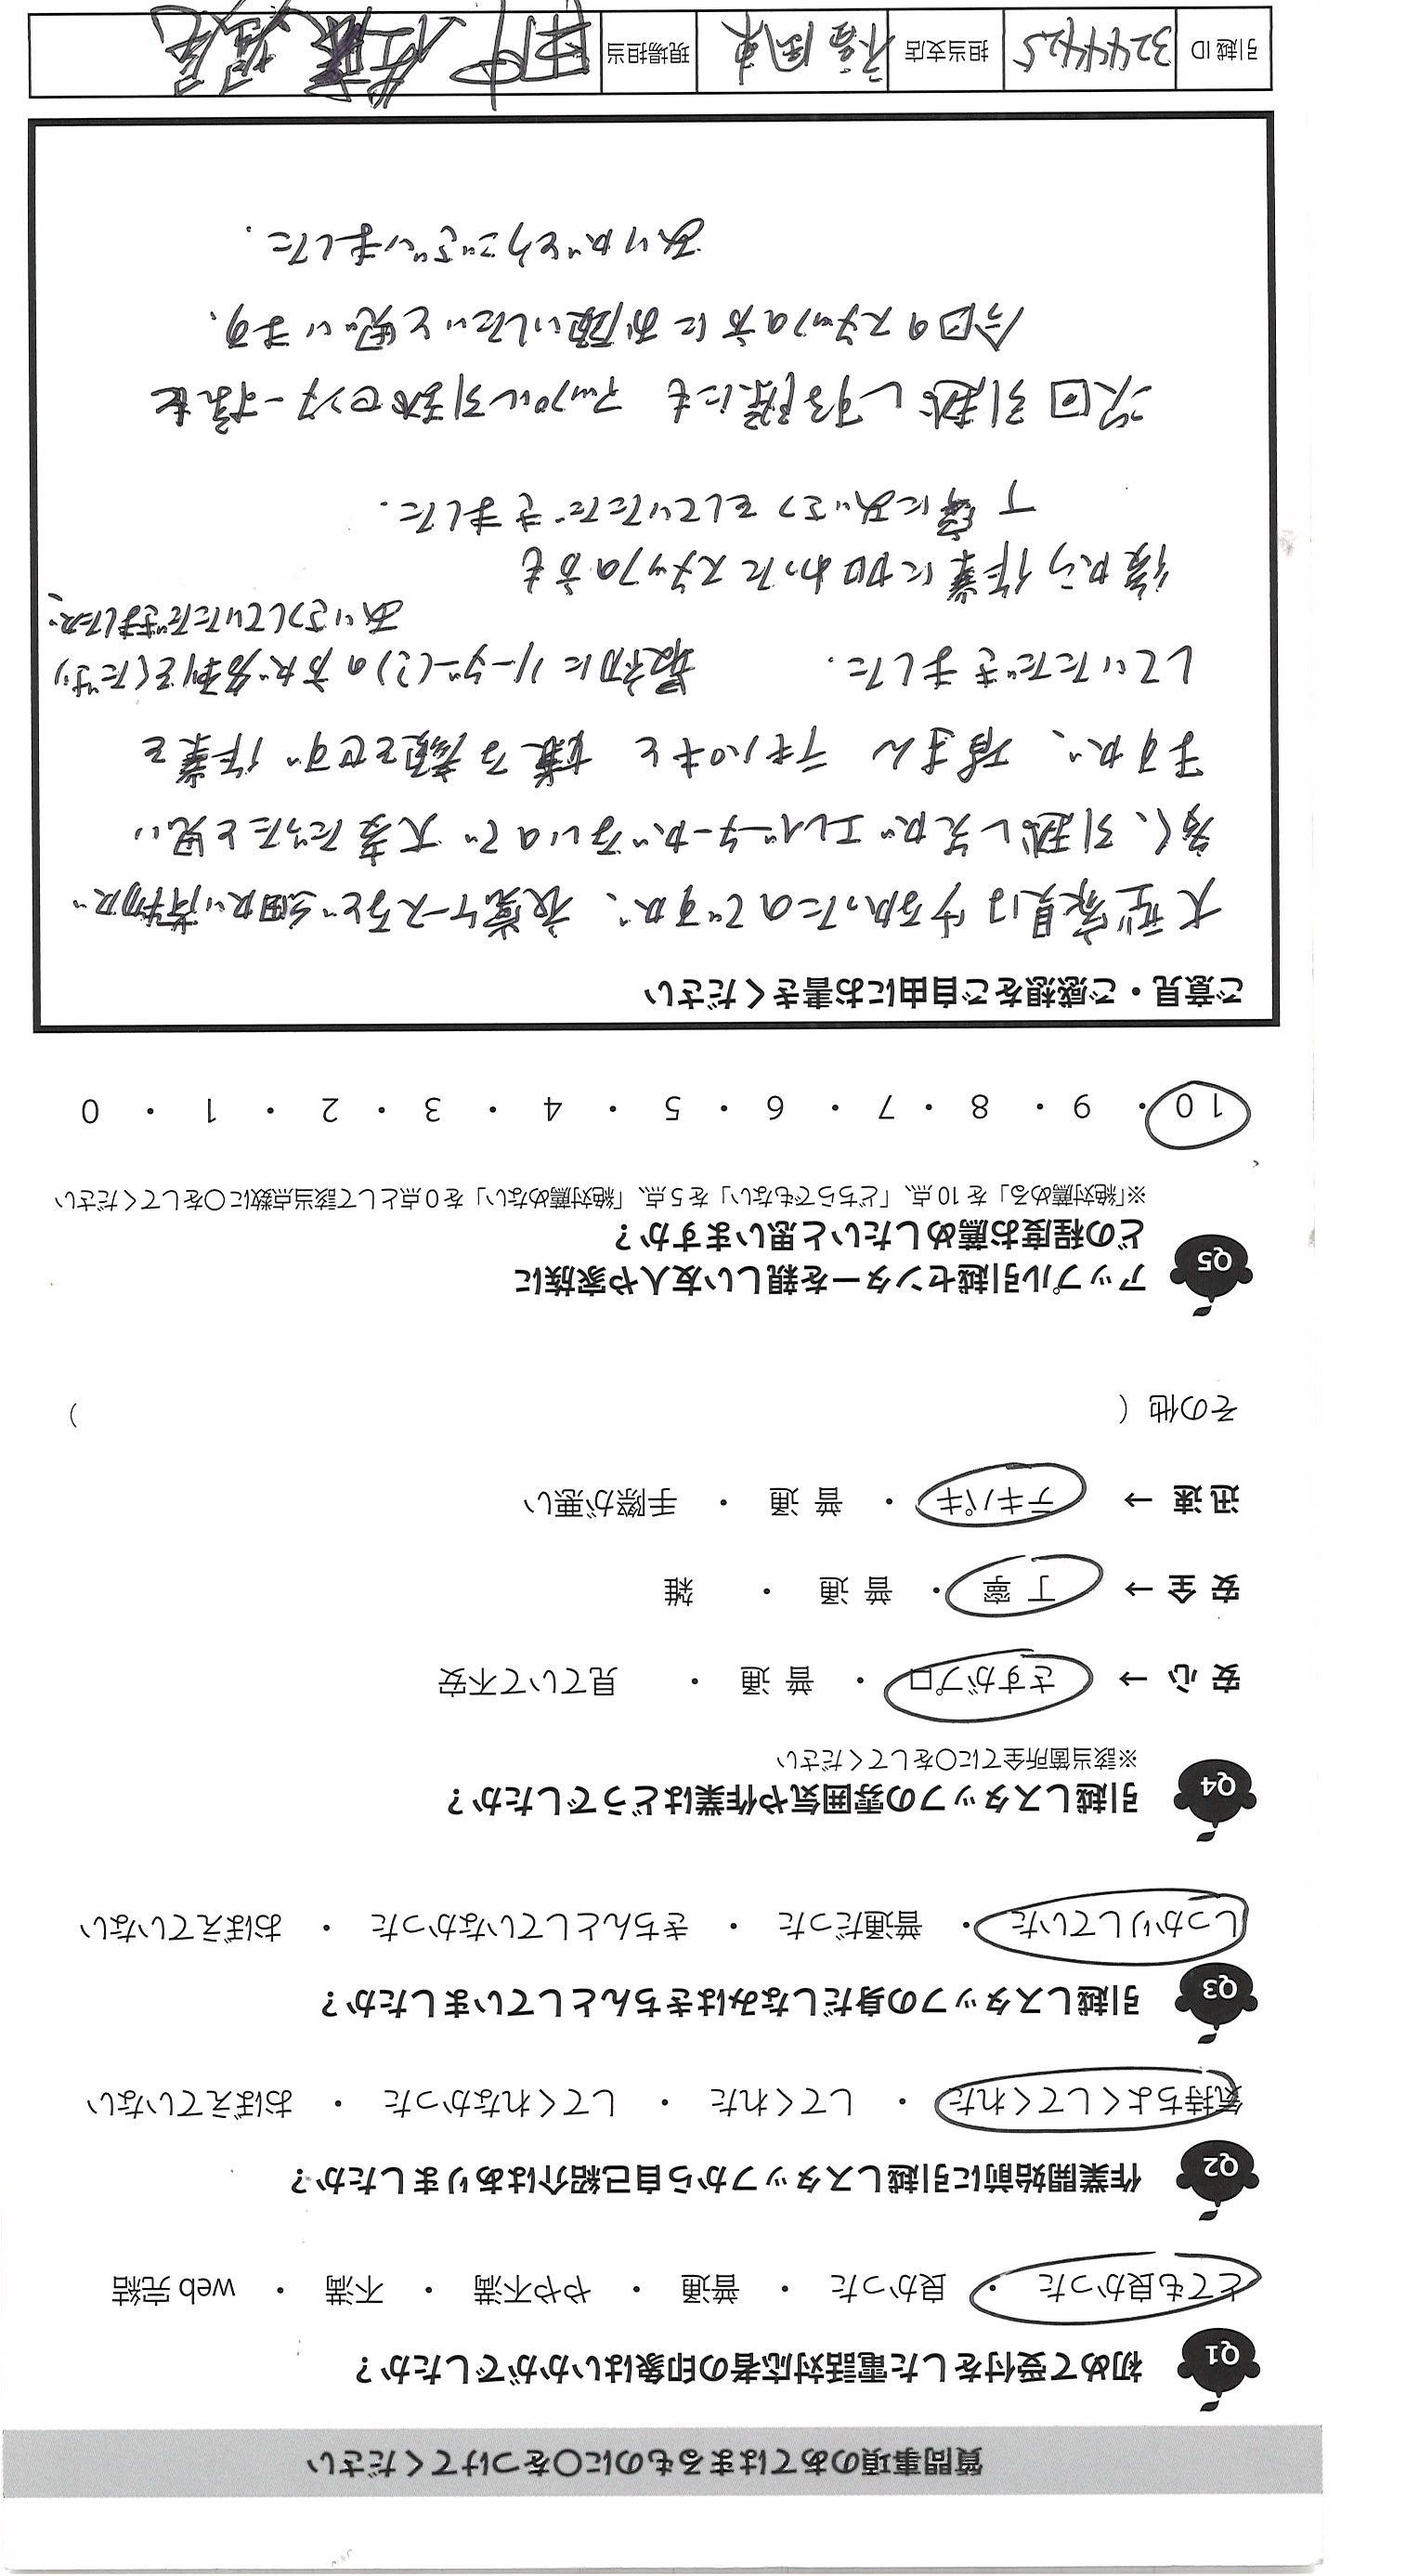 質問事項のあてはまるものに〇をつけてください
Q1 初めて受付をした電話対応者の印象はいかがでしたか？
とても良かった ・ 良かった ・ 普通 ・ やや不満 ・ 不満 ・ web完結
Q2 作業開始前に引越しスタッフから自己紹介はありましたか？
気持ちよくしてくれた ・ してくれた ・ してくれなかった ・ おぼえていない
Q3 引越しスタッフの身だしなみはきちんとしていましたか？
しっかりしていた ・ 普通だった ・ きちんとしていなかった ・ おぼえていない
Q4 引越しスタッフの雰囲気や作業はどうでしたか？
※該当箇所全てに〇をしてください
安心 → さすがプロ ・ 普通 ・ 見ていて不安
安全 → 丁寧 ・ 普通 ・ 雑
迅速 → テキパキ ・ 普通 ・ 手際が悪い
その他（ ）
Q5 アップル引越センターを親しい友人や家族に
どの程度お薦めしたいと思いますか？
※「絶対薦める」を10点、「どちらでもない」を5点、「絶対薦めない」を0点として該当点数に〇をしてください
10 ・ 9 ・ 8 ・ 7 ・ 6 ・ 5 ・ 4 ・ 3 ・ 2 ・ 1 ・ 0
ご意見・ご感想をご自由にお書きください
大型家具は少なかったのですが、衣装ケースなど細かい荷物が
多く、引越し先がエレベーターがないので大変だったと思い
ますが、皆さん テキパキと 嫌な顔とせず 作業を
していただきました. 最初にリーダー(?)の方が名刺をくださり
あいさつしていただきましたが、
後から作業に加わったスタッフの方も
丁寧にあいさつをしていただきました.
次回引越しする際にも アップル引越センター様を
今回のスタッフの方にお願いしたいと思います、
ありがとうございました.
引越ID 3244425 担当支店 福岡東 現場担当 田中 佐藤